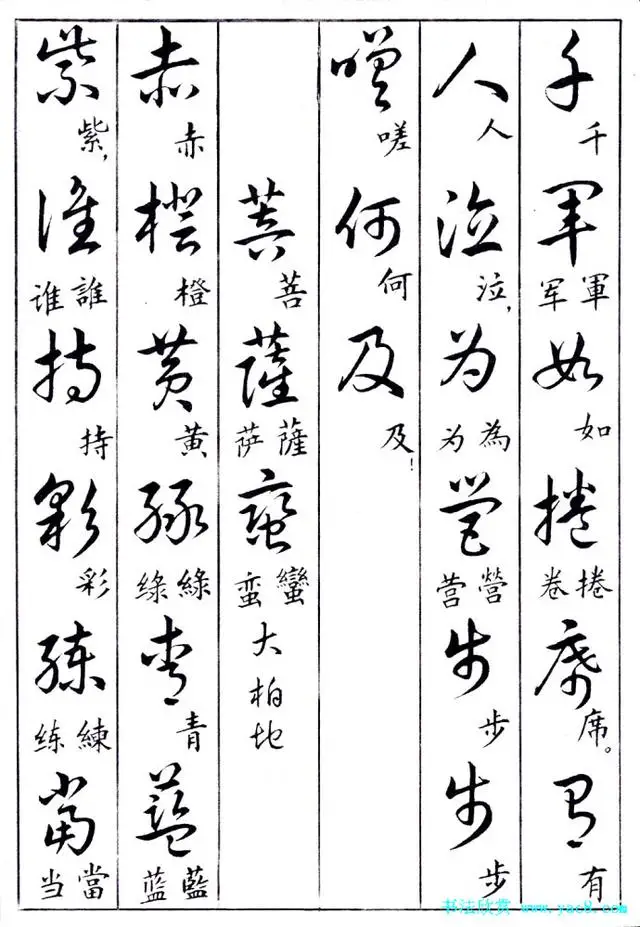 千 千 军 军 軍 如 如 捲 卷 捲 席 席。 有 有
人 人 泣 泣, 为 为 為 营 营 營 步 步 步 步
嗟 嗟 何 何 及 及!
菩 菩 薩 萨 薩 蛮 蛮 蠻 大柏地
赤 赤 橙 橙 黄 黄 绿 绿 綠 青 青 藍 蓝 藍
紫 紫, 谁 谁 誰 持 持 彩 彩 练 练 練 當 当 當
书法欣赏 www.yac8.com